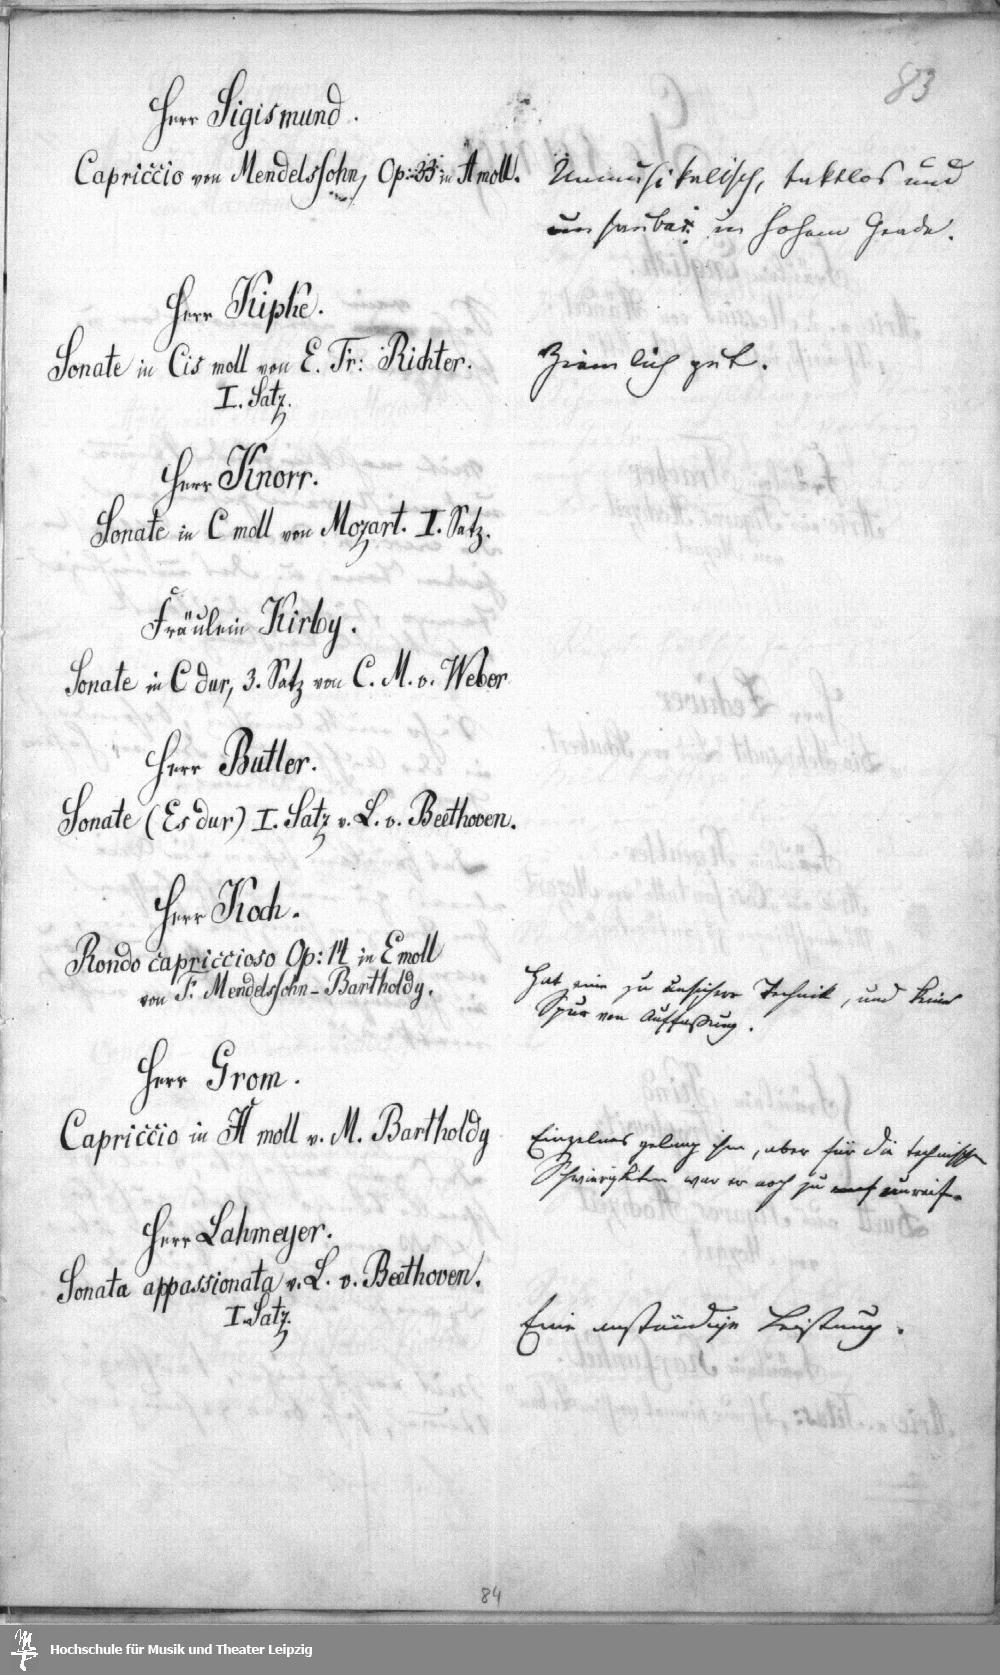 83
Herr Sigismund.
Capriccio von Mendelssohn, Op: 33 in A moll.
Unmusikalisch, taktlos und
unsauber in hohem Grade.
Herr Kipke.
Sonate in Cis moll von E. Fr: Richter.
I. Satz.
Ziemlich gut.
Herr Knorr.
Sonate in C moll von Mozart. I. Satz.
Fräulein Kirby.
Sonate in C dur, 3. Satz von C. M. v. Weber
Herr Butler.
Sonate (Es dur) I. Satz v. L. v. Beethoven.
Herr Koch.
Rondo capriccioso Op: 14 in E moll
von F. Mendelssohn-Bartholdy.
Hat eine zu unsichere Technik, und keine
Spur von Auffassung.
Herr Grom.
Capriccio in H moll v. M. Bartholdy
Einzelnes gelang ihm, aber für die technischen
Schwierigkeiten war er noch zu unreif.
Herr Lahmeyer.
Sonata appassionata v. L. v. Beethoven.
I. Satz.
Eine anständige Leistung.
84
Hochschule für Musik und Theater Leipzig